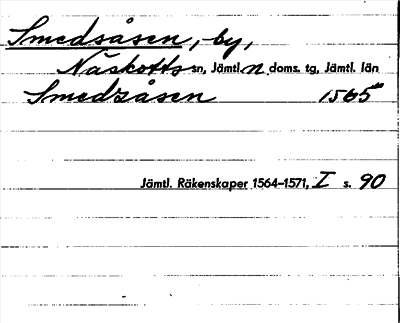 Smedsåsen, by,
Näskotts sn, Jämtl. n doms. tg, Jämtl. län
Smedzåsen 1565
Jämtl. Räkenskaper 1564–1571, I s. 90